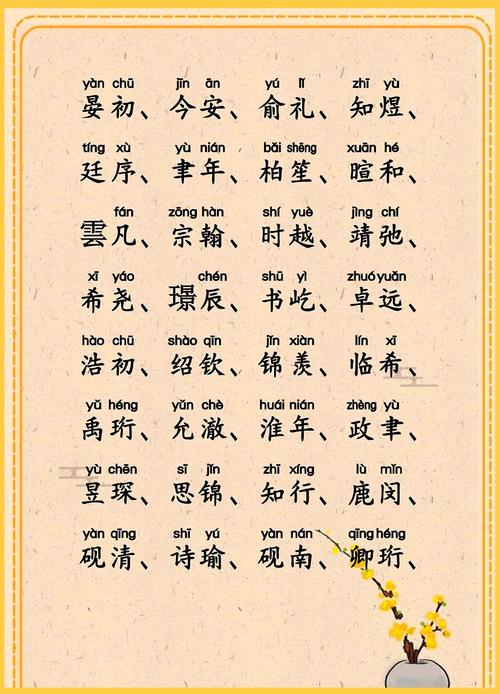 yàn chū jīn ān yú lǐ zhī yù
晏初、今安、俞礼、知煜、
tíng xù yù nián bǎi shēng xuān hé
廷序、聿年、柏笙、暄和、
fán zōng hàn shí yuè jìng chí
雲凡、宗翰、时越、靖弛、
xī yáo chén shū yì zhuó yuǎn
希尧、璟辰、书屹、卓远、
hào chū shào qīn jǐn xiàn lín xī
浩初、绍钦、锦羡、临希、
yǔ héng yǔn chè huái nián zhèng yù
禹珩、允澈、淮年、政聿、
yù chēn sī jǐn zhī xíng lù mǐn
昱琛、思锦、知行、鹿闵、
yàn qīng shī yú yàn nán qīng héng
砚清、诗瑜、砚南、卿珩、